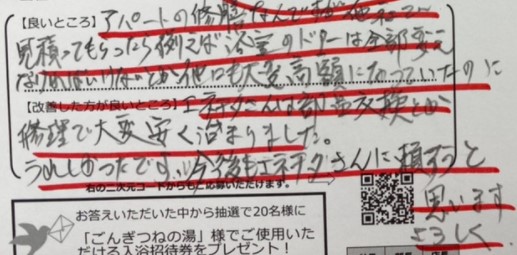 【良いところ】アパートの修繕なんですが他社で
見積ってもらったら例えば浴室のドアーは全部変え
なければいけないとか他にも大変高額になっていたのに
【改善した方が良いところ】エネチタさんは部品交換とか
修理で大変安く治まりました。
うれしかったです。今後もエネチタさんに頼もうと
思います
よろしく
右の二次元コードからもご応募いただけます。
お答えいただいた中から抽選で20名様に
「ごんぎつねの湯」様でご使用いた
だける入浴招待券をプレゼント！